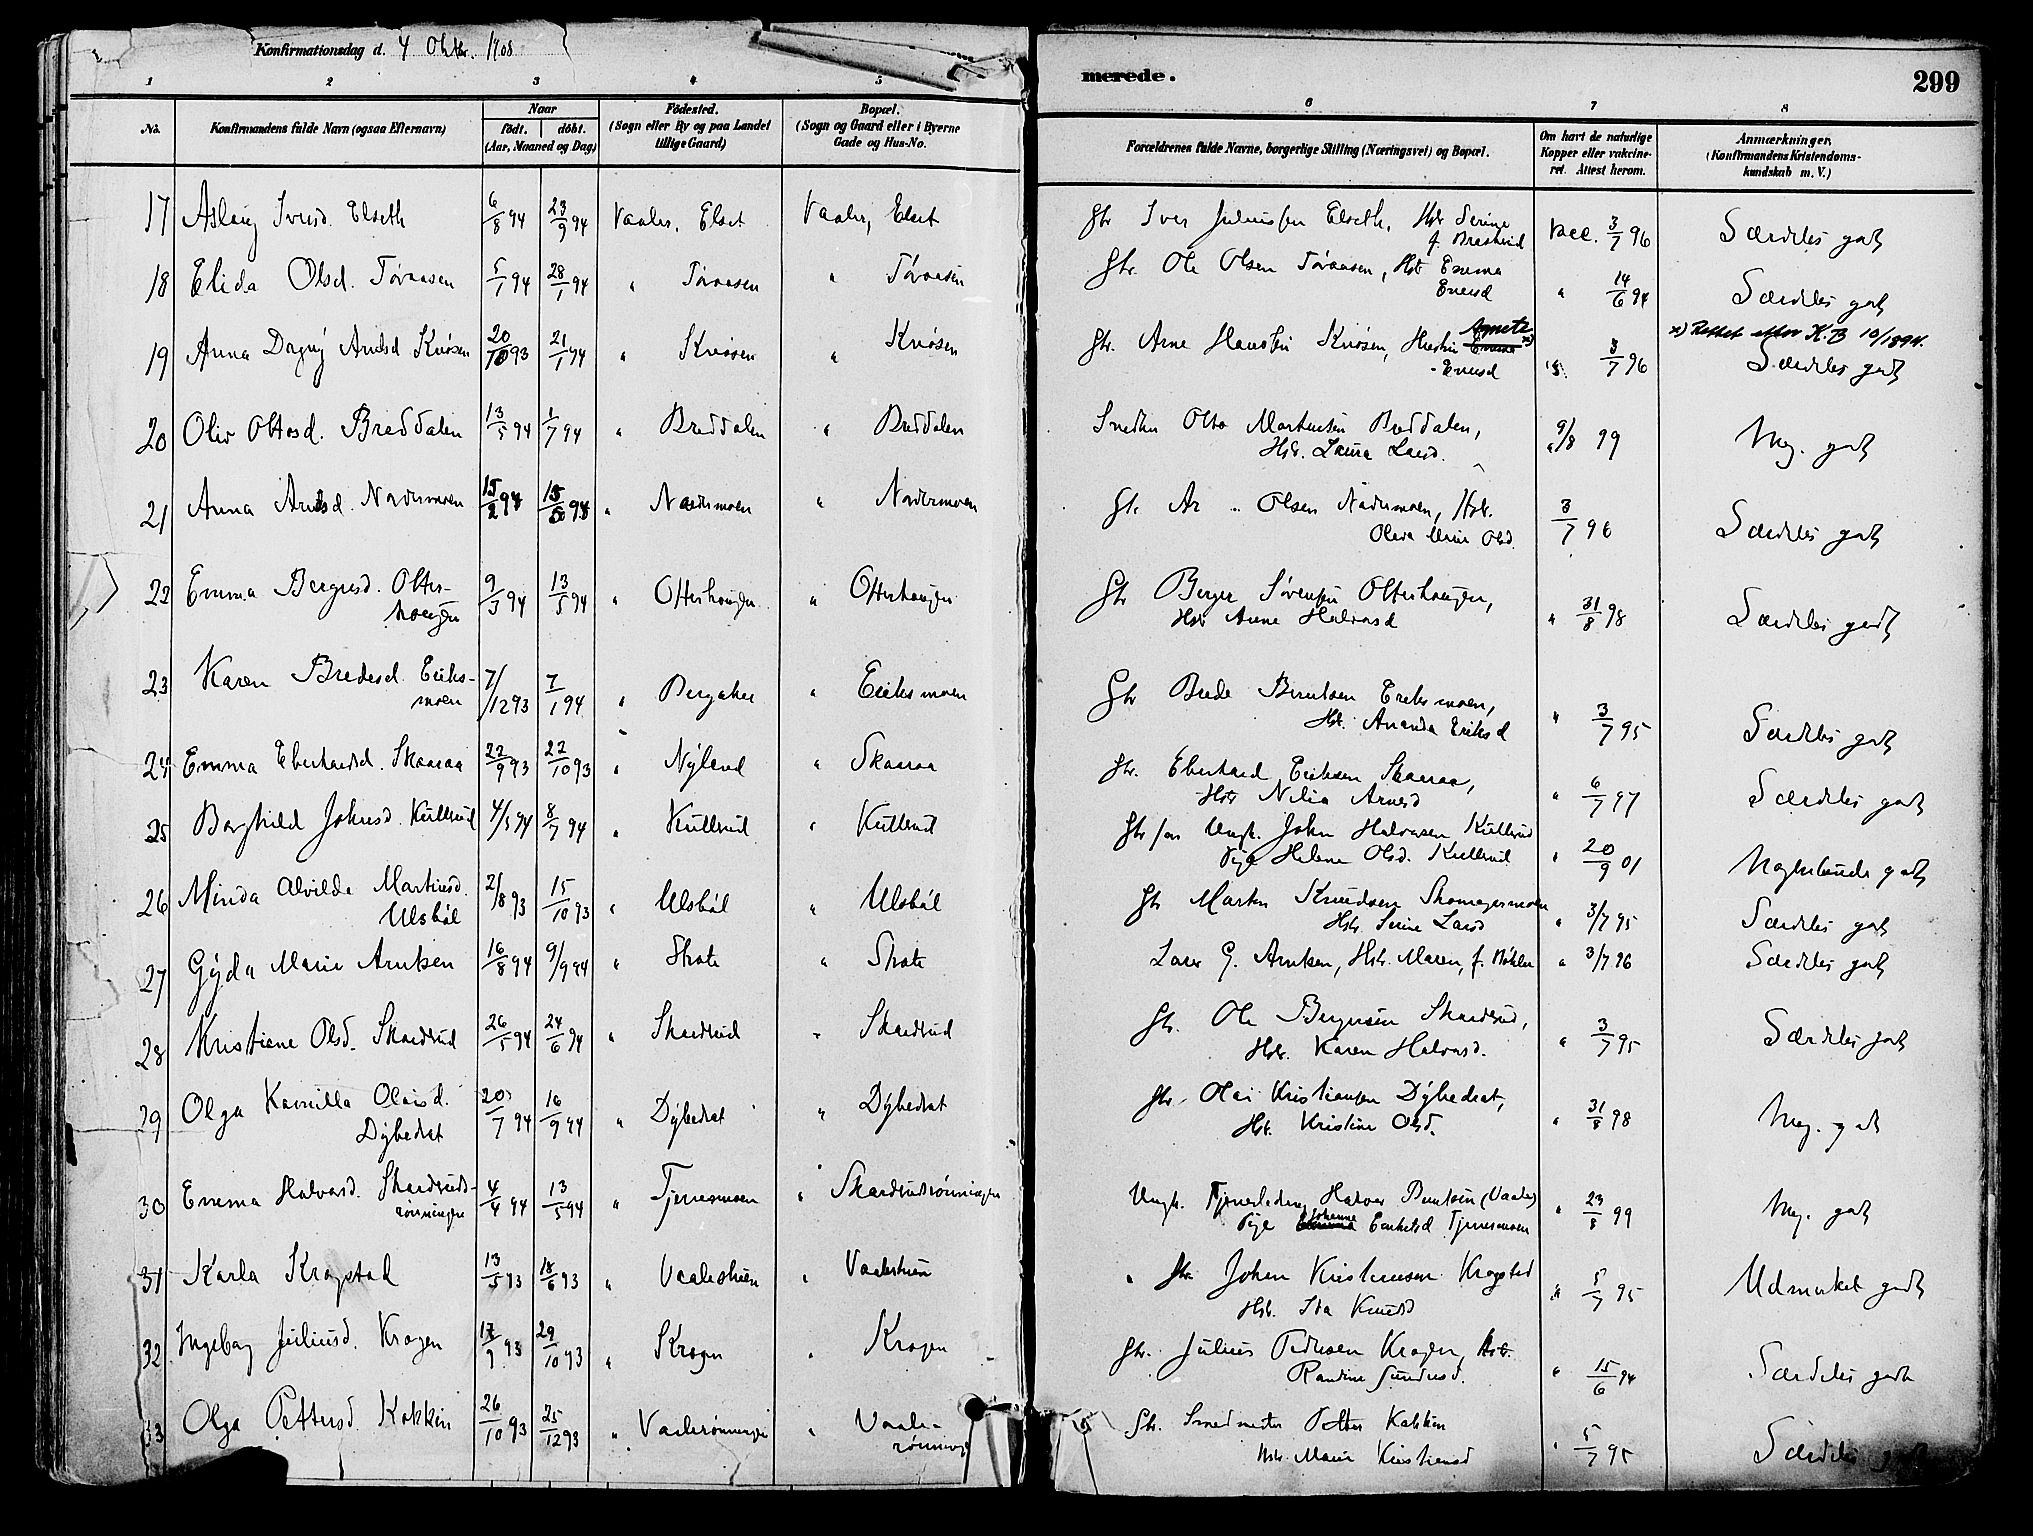 Konfirmationsdag d. 4 Oktbr. 1908
merede.
299
1 2 3 4 5 6 7 8
No.
Konfirmandens fulde Navn (ogsaa Efternavn)
Naar
födt. döbt.
(Aar, Maaned og Dag)
Födested.
(Sogn eller By og paa Landet
tillige Gaard)
Bopæl.
(Sogn og Gaard eller i Byerne
Gade og Hus-No.
Forældrenes fulde Navne, borgerlige Stilling (Næringsvei) og Bopæl.
Om havt de naturlige
Kopper eller vakcine-
ret. Attest herom.
Anmærkninger.
(Konfirmandens Kristendoms-
kundskab m. V.)
17 Aslaug Iversd. Elseth 6/8 94 23/9 94 Vaaler, Elset Vaaler, Elset Gbr Iver Juliussen Elseth, Hstr Serine
f. Braskerud Vacc. 3/7 96 Særdeles godt
18 Elida Olsd. Töraasen 5/1 94 28/1 94 " Töraasen " Töraasen Gbr. Ole Olsen Töraasen, Hstr Emma
Evensd " 14/6 94 Særdeles godt
19 Anna Dagny Arnesd Kvösen 20/10 93 21/1 94 " Kvösen " Kvösen Gbr. Arne Hansen Kvösen, Hustru Emma Agnete x)
Evensd " 3/7 96 x) Rettet efter K.B 10/1894.
Særdeles godt
20 Oliv Ottosd. Breddalen 13/5 94 1/7 94 " Breddalen " Breddalen Snedker Otto Martinsen Breddalen,
Hstr. Laura Larsd. " 9/8 99 Meg. godt
21 Anna Arnesd. Nordermoen 15/2 94 15/5 94 " Nordermoen " Nordermoen Gbr. Olsen Nordermoen, Hstr.
Olava Marie Olsd. 3/7 96 Særdeles godt
22 Emma Bergersd. Otter-
haugen 9/3 94 13/5 94 " Otterhaugen " Otterhaugen Gbr Berger Sörensen Otterhaugen,
Hstr Anne Halvorsd " 31/8 98 Særdeles godt
23 Karen Bredesd. Eriks-
moen 7/12 93 7/1 94 " Bergaker " Eriksmoen Gbr Brede Berntsen Eriksmoen,
Hstr. Amanda Eriksd " 3/7 95 Særdeles godt
24 Emma Eberhardsd. Skaaraa 22/9 93 22/10 93 " Nyland " Skaaraa Gbr. Eberhard Eriksen Skaaraa,
Hstr Nilia Arnesd " 6/7 97 Særdeles godt
25 Borghild Johnsd. Kullerud 4/5 94 8/7 94 " Kullerud " Kullerud Gbr søn Ungk. John Halvorsen Kullerud
Pige Helene Olsd. Kullerud " 20/9 01 Nogenlunde godt
26 Minda Alvilde Martinsd.
Ulsböl 21/8 93 15/10 93 " Ulsböl " Ulsböl Gbr Martin Knudsen Skomagermoen
Hstr. Serine Larsd " 3/7 95 Særdeles godt
27 Gyda Marie Arntsen 16/8 94 9/9 94 " Skole " Skole Lærer G. Arntsen, Hstr. Maren, f. Böhler " 3/7 96 Særdeles godt
28 Kristiane Olsd. Skardrud 26/5 94 24/6 94 " Skardrud " Skardrud Gbr. Ole Bergersen Skardrud,
Hstr. Karen Halvorsd. " 3/7 95 Særdeles godt
29 Olga Kamilla Olaisd.
Dybedret 20/7 94 16/9 94 " Dybedret " Dybedret Gbr. Olai Kristiansen Dybedret,
Hstr. Kristine Olsd. " 31/8 98 Meg. godt
30 Emma Halvorsd. Skardruds-
rönningen 4/4 94 13/5 94 " Tjernsmoen " Skardrudrönningen Ungk. Halvor Berntsen (Vaaler)
Pige Johanne Tjernsmoen " 23/8 99 Meg. godt
31 Karla Krogstad 13/5 93 18/6 93 " Vaalershien " Vaalershien Gbr. Johan Kristiansen Krogstad
Hstr. Ida Knudsd " 5/7 95 Udmerket godt
32 Ingeborg Juliusd. Krogen 17/9 93 29/10 93 " Krogen " Krogen Gbr. Julius Pedersen Krogen, Hstr.
Randine Gundersd. " 15/6 94 Særdeles godt
33 Olga Pettersd. Kokkin 26/10 93 25/12 93 " Vaalerönningen " Vaale-
rönningen Gbr. Smedmester Petter Kokkin
Hstr. Marie Kristiansd " 5/7 95 Særdeles godt